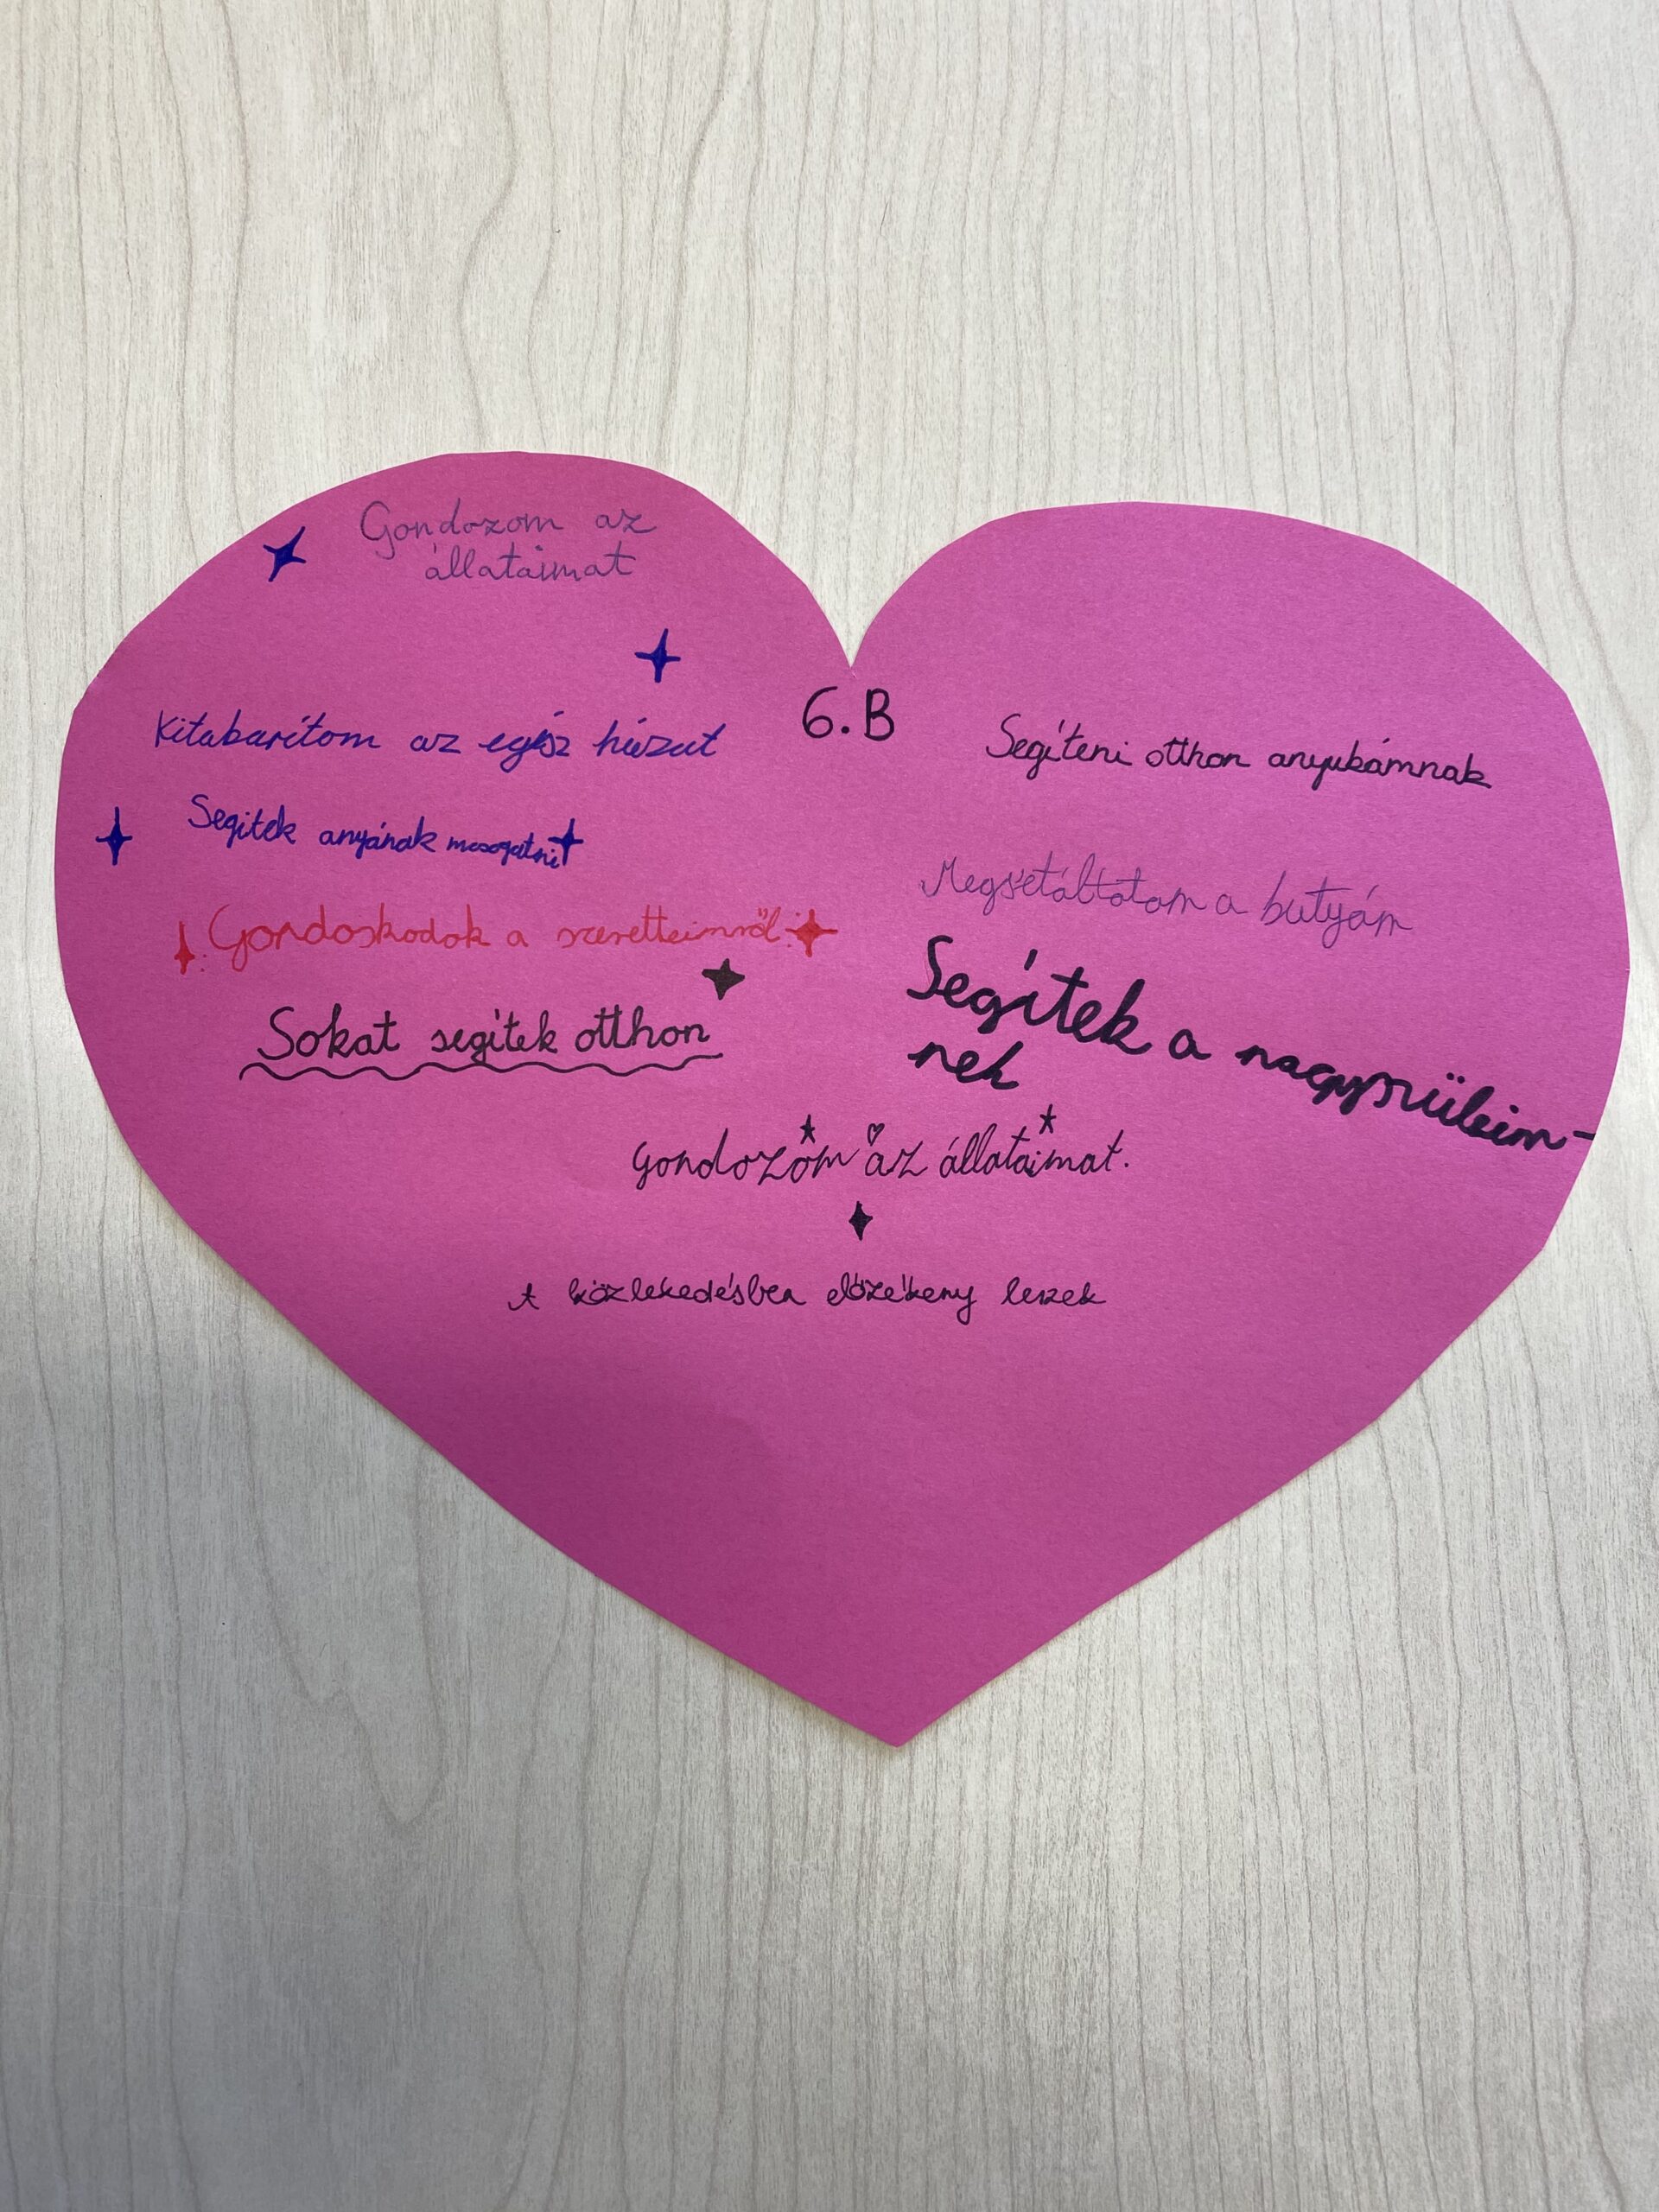 Gondozom az
állataimat
6.B
Kitakarítom az egész házat
Segitek anyának mosogatni
Gondoskodok a szeretteimről.
Sokat segítek otthon
Segíteni otthon anyukámnak
Megsétáltatom a kutyám
Segítek a nagyszüleim-
nek
Gondozom az állataimat.
A közlekedésben előzékeny leszek